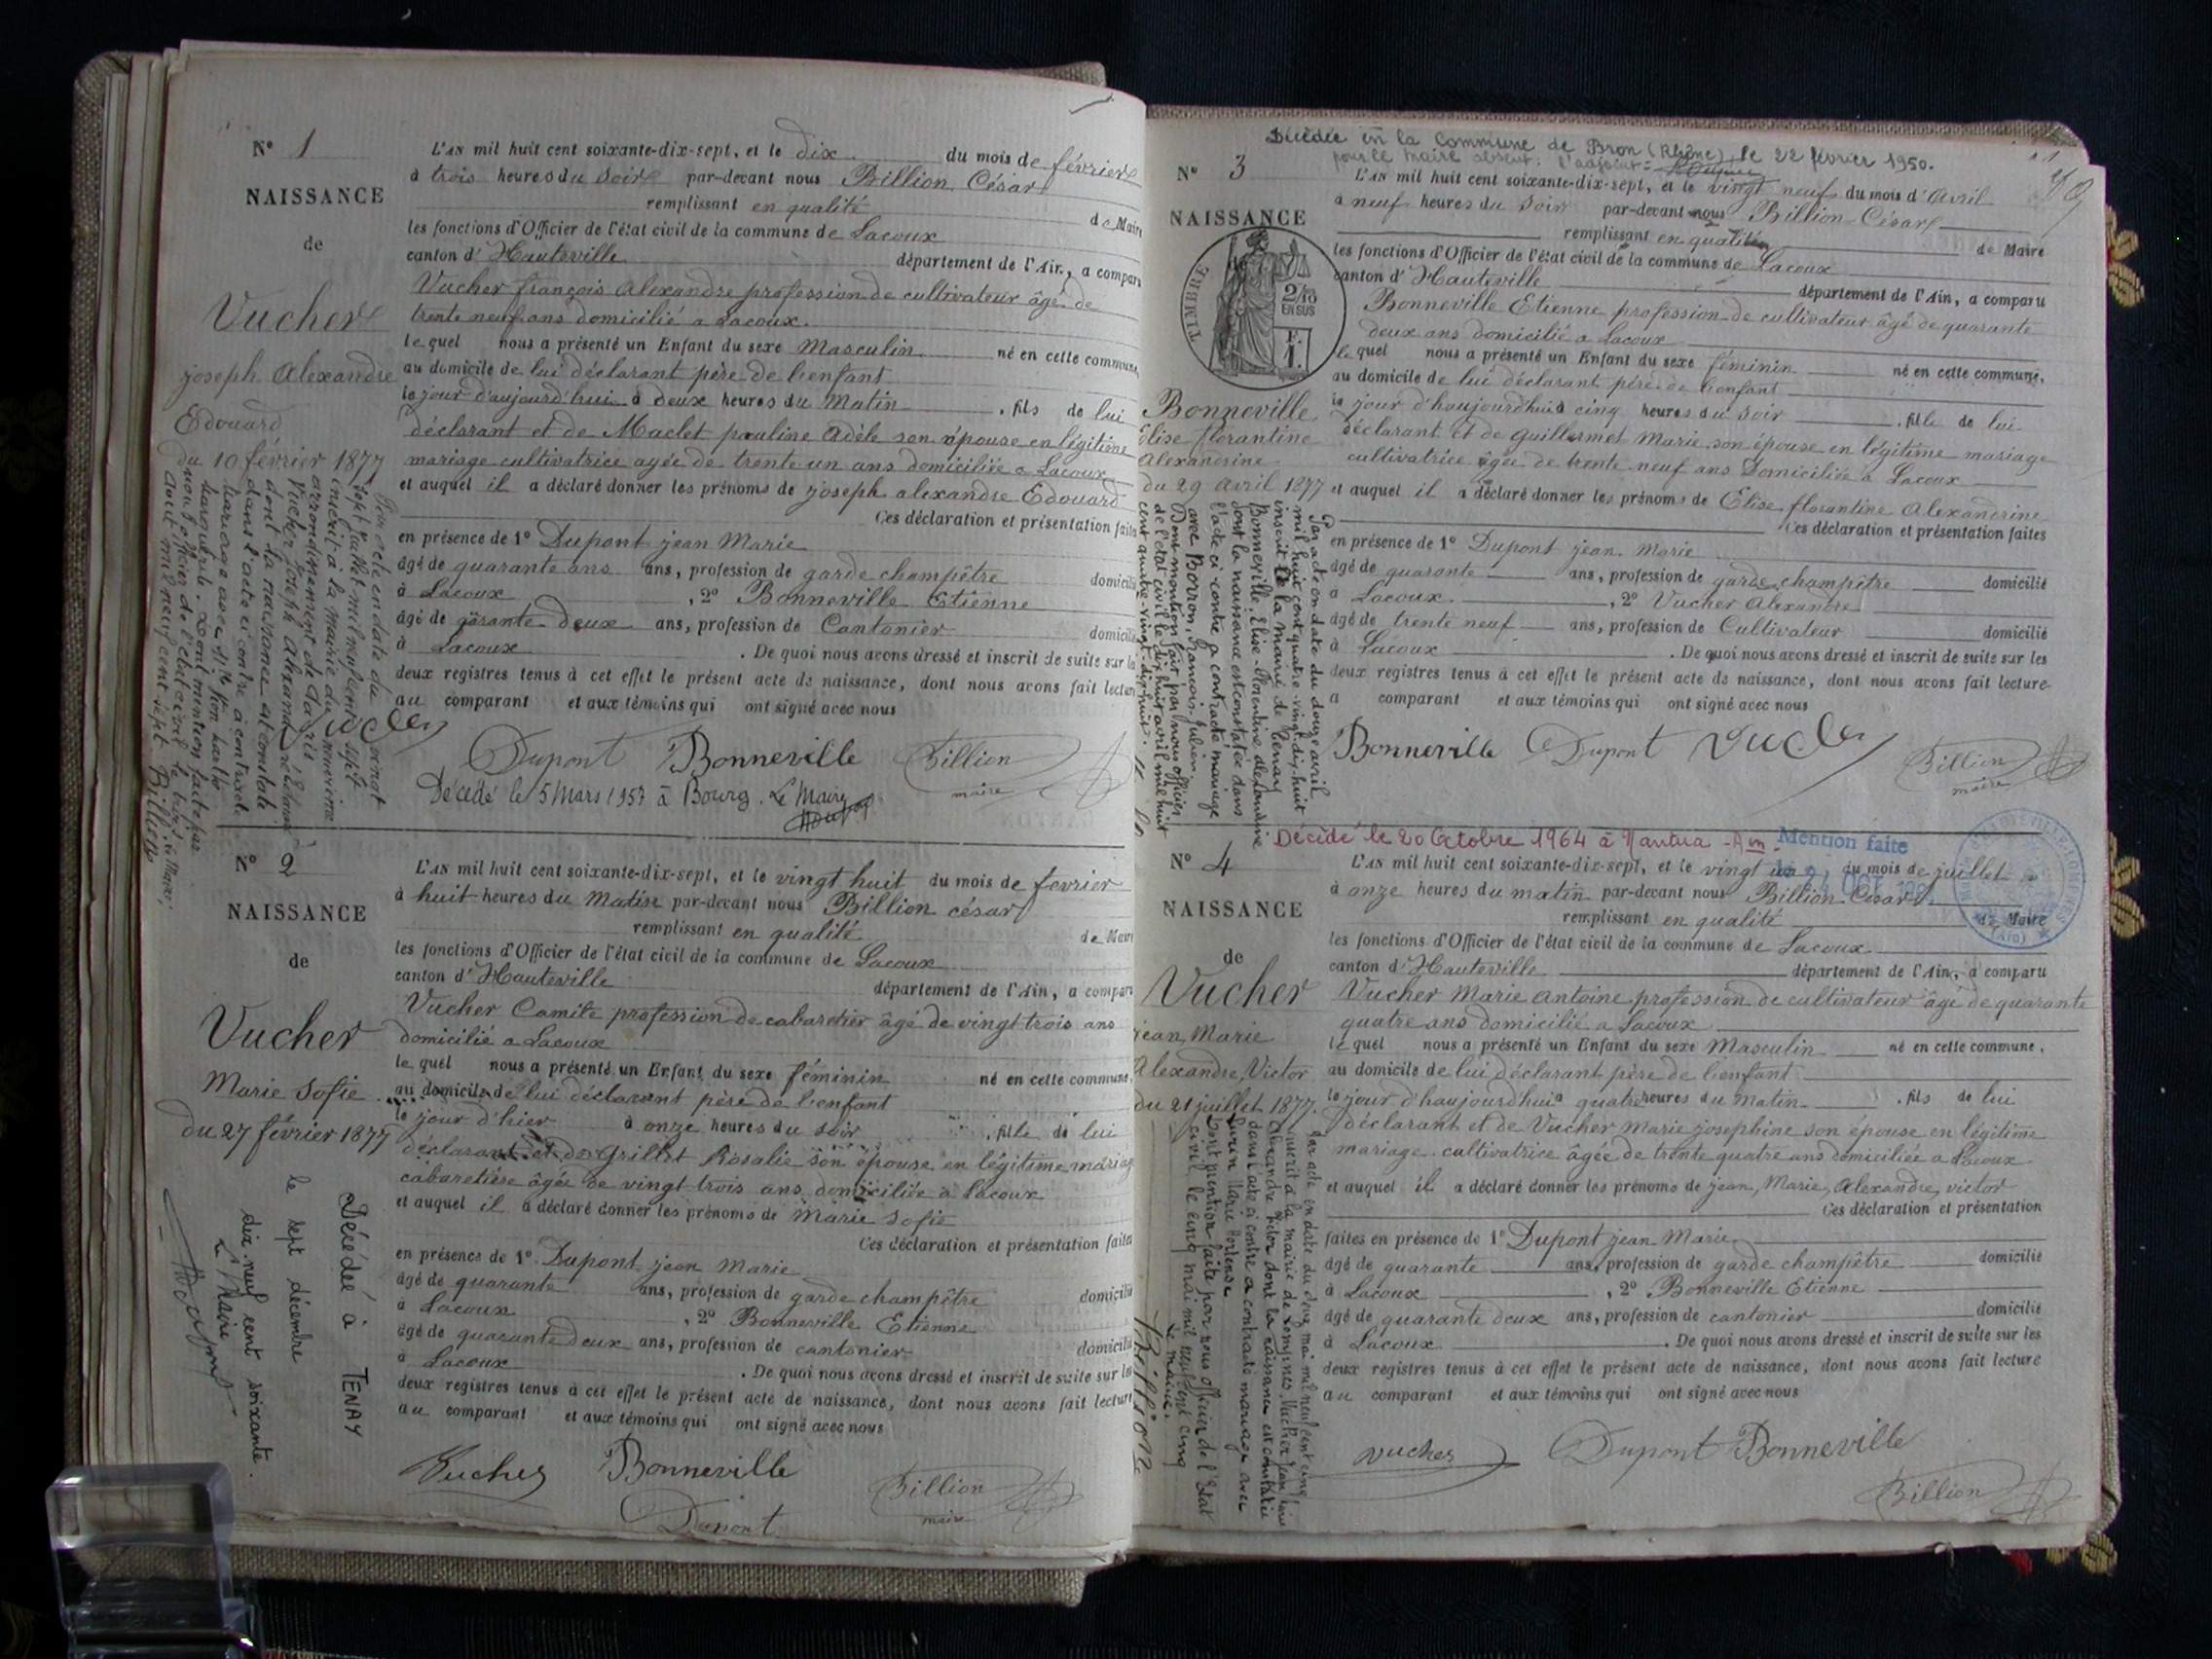 N° 1
NAISSANCE
de
Vucher
joseph Alexandre
Edouard
du 10 février 1877
L'AN mil huit cent soixante-dix-sept, et le dix du mois de février
à trois heures du Soir par-devant nous Billion César
remplissant en qualité de Maire
les fonctions d'Officier de l'état civil de la commune de Lacoux
canton d'Hauteville département de l'Ain, a comparu
Vucher françois Alexandre profession de cultivateur âgé de
trente neuf ans domicilié a Lacoux.
lequel nous a présenté un Enfant du sexe Masculin né en cette commune,
au domicile de lui déclarant père de l'enfant
le jour d'aujourd'hui à deux heures du Matin , fils de lui
déclarant et de Maclet pauline Adèle son épouse en légitime
mariage cultivatrice agée de trente un ans domiciliée a Lacoux
et auquel il a déclaré donner les prénoms de joseph alexandre Edouard
Ces déclaration et présentation faites
en présence de 1° Dupont jean Marie
âgé de quarante ans ans, profession de garde champêtre domicilié
à Lacoux , 2° Bonneville Etienne
âgé de qarante deux ans, profession de Cantonier domicilié
à Lacoux . De quoi nous avons dressé et inscrit de suite sur les
deux registres tenus à cet effet le présent acte de naissance, dont nous avons fait lecture
au comparant et aux témoins qui ont signé avec nous
Vucher
Dupont Bonneville Billion
maire
Décédé le 5 Mars 1957 à Bourg. Le Maire
Par acte en date du
sept juillet mil neuf cent sept
inscrit à la mairie du neuvième
arrondissement de Paris
Vucher joseph Alexandre Edouard
dont la naissance est constatée
dans l'acte ci contre a contracté
mariage avec
Marguerite. Dont mention faite par
nous officier de l'état civil le trois
Août mil neuf cent sept Billion
N° 2
NAISSANCE
de
Vucher
Marie Sofie
du 27 février 1877
L'AN mil huit cent soixante-dix-sept, et le vingt huit du mois de fevrier
à huit heures du Matin par-devant nous Billion césar
remplissant en qualité de Maire
les fonctions d'Officier de l'état civil de la commune de Lacoux
canton d'Hauteville département de l'Ain, a comparu
Vucher Camile profession de cabaretier âgé de vingt trois ans
domicilié a Lacoux
lequel nous a présenté un Enfant du sexe féminin né en cette commune,
au domicile de lui déclarant père de l'enfant
le jour d'hier à onze heures du soir , fille de lui
déclarant et de Grillet Rosalie son épouse en légitime mariage
cabaretière âgée de vingt trois ans domiciliée à Lacoux
et auquel il a déclaré donner les prénoms de Marie Sofie
Ces déclaration et présentation faites
en présence de 1° Dupont jean Marie
âgé de quarante ans, profession de garde champêtre domicilié
à Lacoux , 2° Bonneville Etienne
âgé de quarante deux ans, profession de cantonier domicilié
à Lacoux . De quoi nous avons dressé et inscrit de suite sur les
deux registres tenus à cet effet le présent acte de naissance, dont nous avons fait lecture
au comparant et aux témoins qui ont signé avec nous
Vucher Bonneville Billion
maire
Dupont
Décédée à TENAY
le sept décembre
dix neuf cent soixante.
Le Maire
Décédée en la Commune de Bron (Rhône), le 22 février 1950.
pour le maire absent: l'adjoint:
N° 3
NAISSANCE
TIMBRE
2/10
EN SUS
F.
1.
Bonneville
Elise florantine
Alexandrine
du 29 Avril 1877
L'AN mil huit cent soixante-dix-sept, et le vingt neuf du mois d'Avril
à neuf heures du Soir par-devant nous Billion César
remplissant en qualité de Maire
les fonctions d'Officier de l'état civil de la commune de Lacoux
canton d'Hauteville département de l'Ain, a comparu
Bonneville Etienne profession de cultivateur âgé de quarante
deux ans domicilié a Lacoux
lequel nous a présenté un Enfant du sexe féminin né en cette commune,
au domicile de lui déclarant père de l'enfant
le jour d'haujourd'hui à cinq heures du Soir , fille de lui
déclarant et de Guillermet Marie son épouse en légitime mariage
cultivatrice âgée de trente neuf ans Domiciliée a Lacoux
et auquel il a déclaré donner les prénoms de Elise florantine Alexandrine
Ces déclaration et présentation faites
en présence de 1° Dupont jean Marie
âgé de quarante ans, profession de garde champêtre domicilié
à Lacoux , 2° Vucher Alexandre
âgé de trente neuf ans, profession de Cultivateur domicilié
à Lacoux . De quoi nous avons dressé et inscrit de suite sur les
deux registres tenus à cet effet le présent acte de naissance, dont nous avons fait lecture
a comparant et aux témoins qui ont signé avec nous
Bonneville Dupont Vucher
Billion
maire
Par acte en date du douze avril
mil huit cent quatre-vingt-dix-huit
inscrit à la mairie de Tenay
Bonneville Elise-Florentine Alexandrine
dont la naissance est constatée dans
l'acte ci-contre a contracté mariage
avec Borron, François, Julien.
Dont mention fait par nous officier
de l'état civil le dix huit avril mil huit
cent quatre-vingt-dix-huit.
Décédé le 20 Octobre 1964 à Nantua - Ain.
Mention faite
N° 4
NAISSANCE
de
Vucher
jean, Marie
Alexandre, Victor
du 21 juillet 1877.
L'AN mil huit cent soixante-dix-sept, et le vingt un du mois de juillet
à onze heures du matin par-devant nous Billion César
remplissant en qualité de Maire
les fonctions d'Officier de l'état civil de la commune de Lacoux
canton d'Hauteville département de l'Ain, a comparu
Vucher Marie Antoine profession de cultivateur âgé de quarante
quatre ans domicilié a Lacoux
lequel nous a présenté un Enfant du sexe Masculin né en cette commune,
au domicile de lui déclarant père de l'enfant
le jour d'haujourd'hui à quatre heures du Matin , fils de lui
déclarant et de Vucher Marie josephine son épouse en légitime
mariage cultivatrice âgée de trente quatre ans domiciliée a Lacoux
et auquel il a déclaré donner les prénoms de jean, Marie, Alexandre, victor
Ces déclaration et présentation
faites en présence de 1° Dupont jean Marie
âgé de quarante ans, profession de garde champêtre domicilié
à Lacoux , 2° Bonneville Etienne
âgé de quarante deux ans, profession de cantonier domicilié
à Lacoux . De quoi nous avons dressé et inscrit de suite sur les
deux registres tenus à cet effet le présent acte de naissance, dont nous avons fait lecture
au comparant et aux témoins qui ont signé avec nous
vucher Dupont Bonneville
Billion
Par acte en date du deux mai mil neuf cent cinq
inscrit à la mairie de Vucher Jean Marie
Alexandre Victor dont la naissance est constatée
dans l'acte ci contre a contracté mariage avec
Marie Hortense
Dont mention faite par nous officier de l'Etat
civil le cinq mai mil neuf cent cinq
Le maire.
Billion